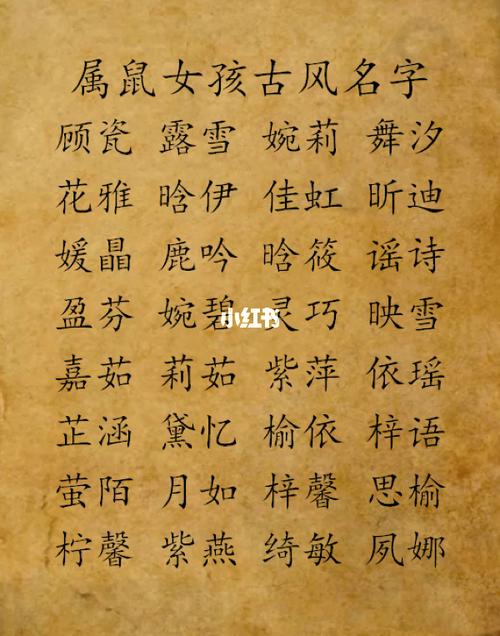 属鼠女孩古风名字
顾瓷 露雪 婉莉 舞汐
花雅 晗伊 佳虹 昕迪
媛晶 鹿吟 晗筱 谣诗
盈芬 婉碧 灵巧 映雪
小红书
嘉茹 莉茹 紫萍 依瑶
芷涵 黛忆 榆依 梓语
萤陌 月如 梓馨 思榆
柠馨 紫燕 绮敏 夙娜